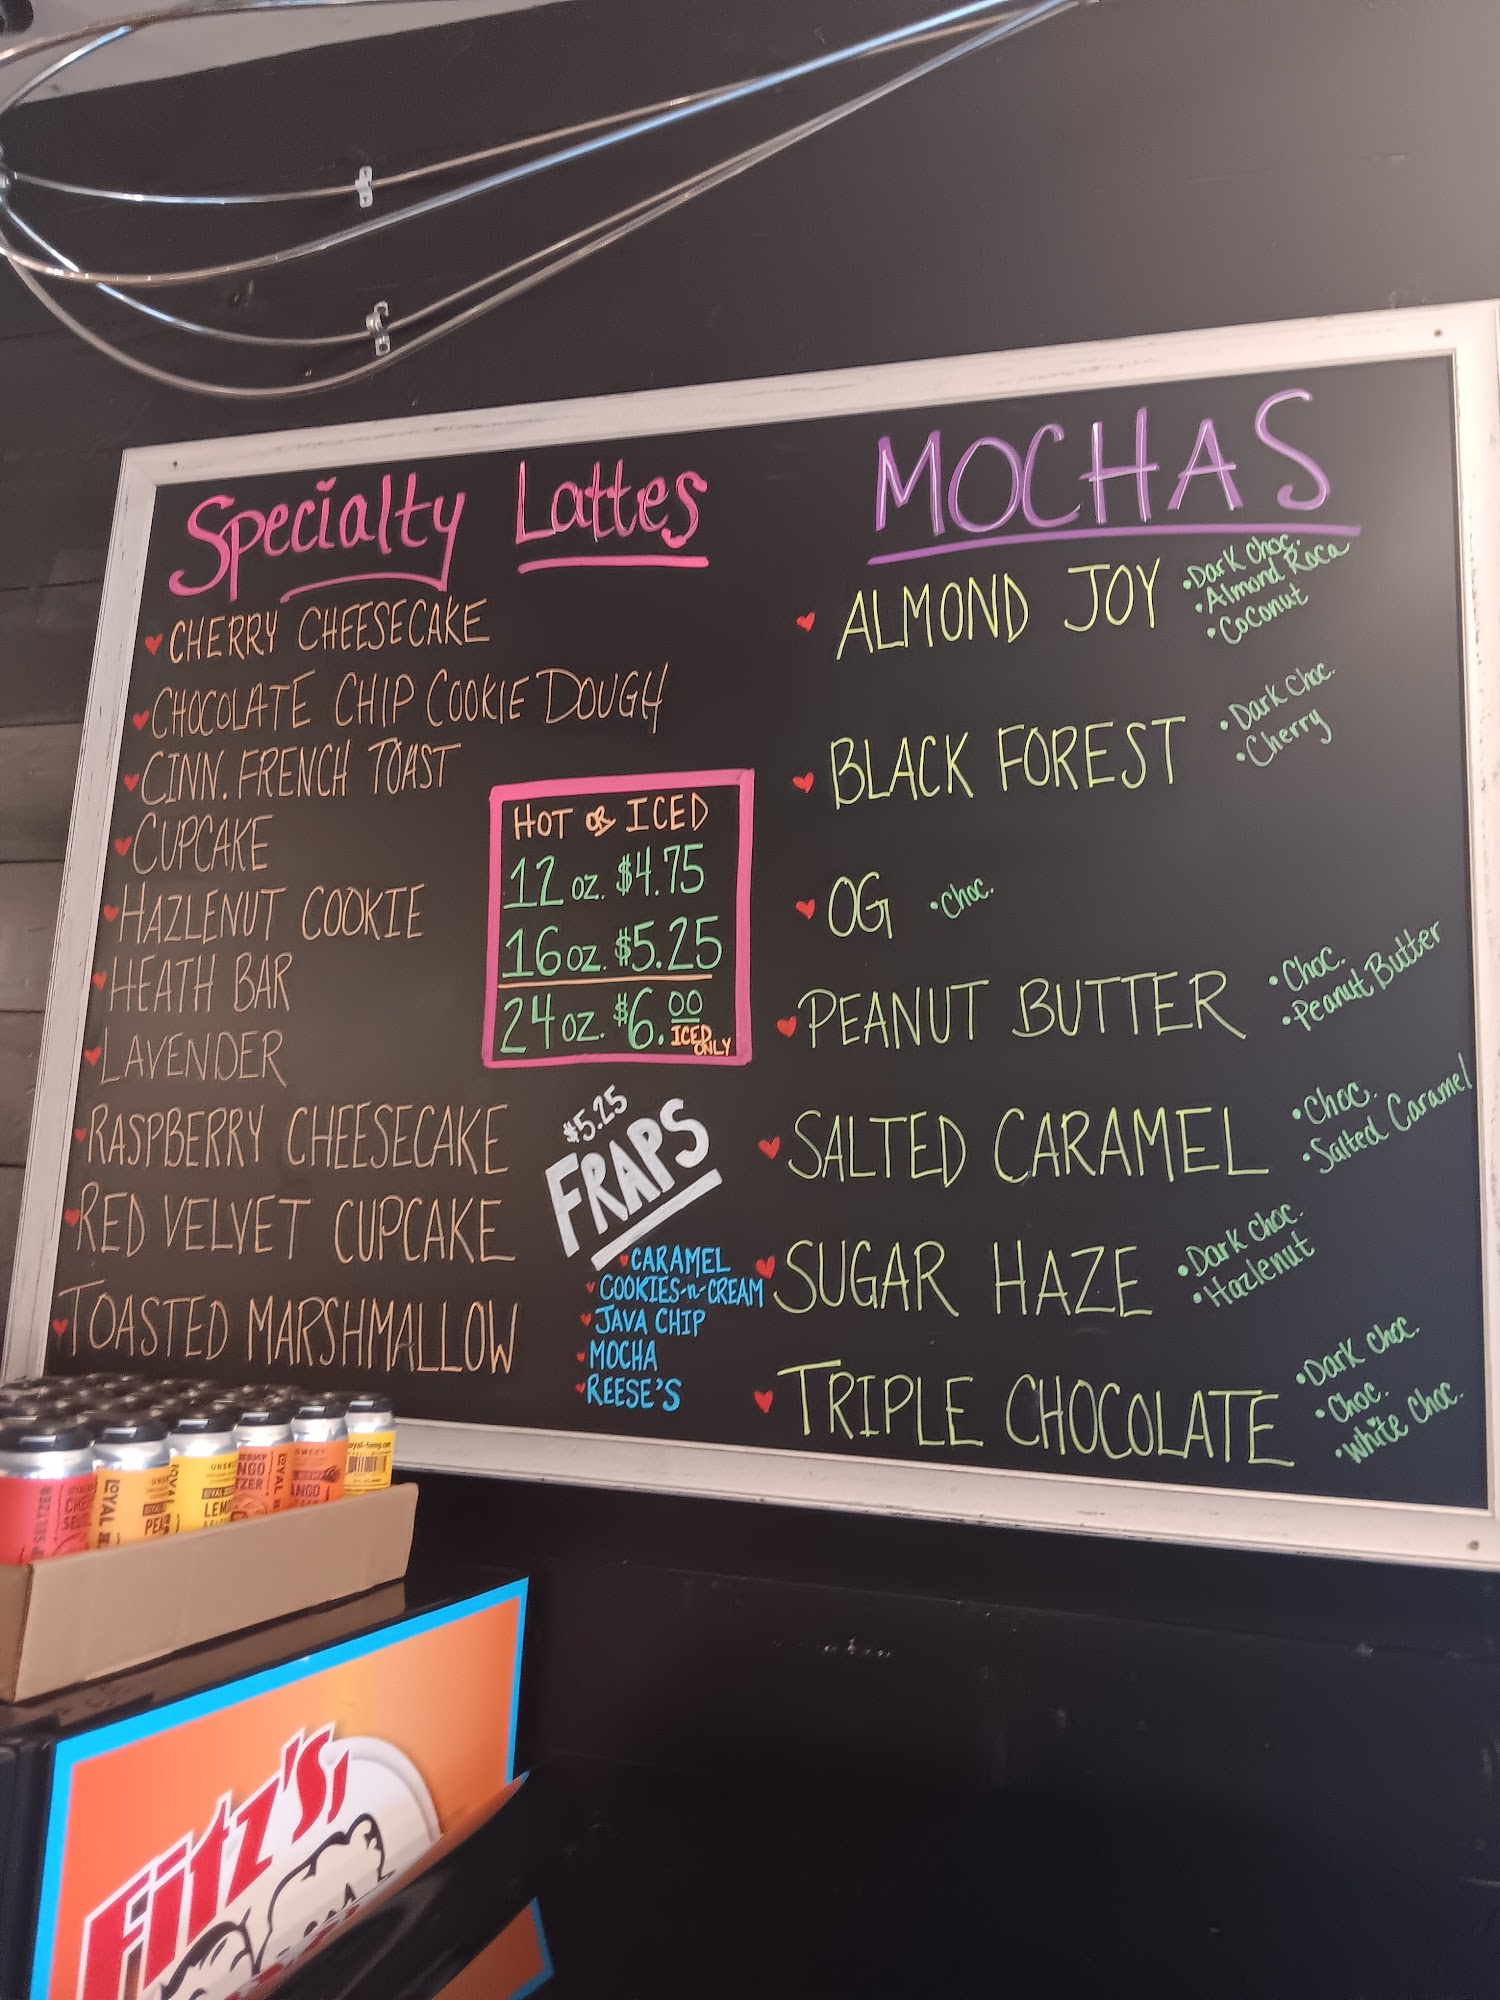 Specialty Lattes
CHERRY CHEESECAKE
CHOCOLATE CHIP COOKIE DOUGH
CINN. FRENCH TOAST
CUPCAKE
HAZLENUT COOKIE
HEATH BAR
LAVENDER
RASPBERRY CHEESECAKE
RED VELVET CUPCAKE
TOASTED MARSHMALLOW
HOT OR ICED
12 oz. $4.75
16 oz. $5.25
24 oz. $6.00
ICED
ONLY
$5.25
FRAPS
CARAMEL
COOKIES-n-CREAM
JAVA CHIP
MOCHA
REESE'S
MOCHAS
ALMOND JOY
•Dark Choc.
•Almond Roca
•Coconut
BLACK FOREST
•Dark Choc.
•Cherry
OG
•Choc.
PEANUT BUTTER
•Choc.
•Peanut Butter
SALTED CARAMEL
•Choc.
•Salted Caramel
SUGAR HAZE
•Dark Choc.
•Hazlenut
TRIPLE CHOCOLATE
•Dark Choc.
•Choc.
•White Choc.
SELTZER
LOYAL
LOYAL
Fitz's